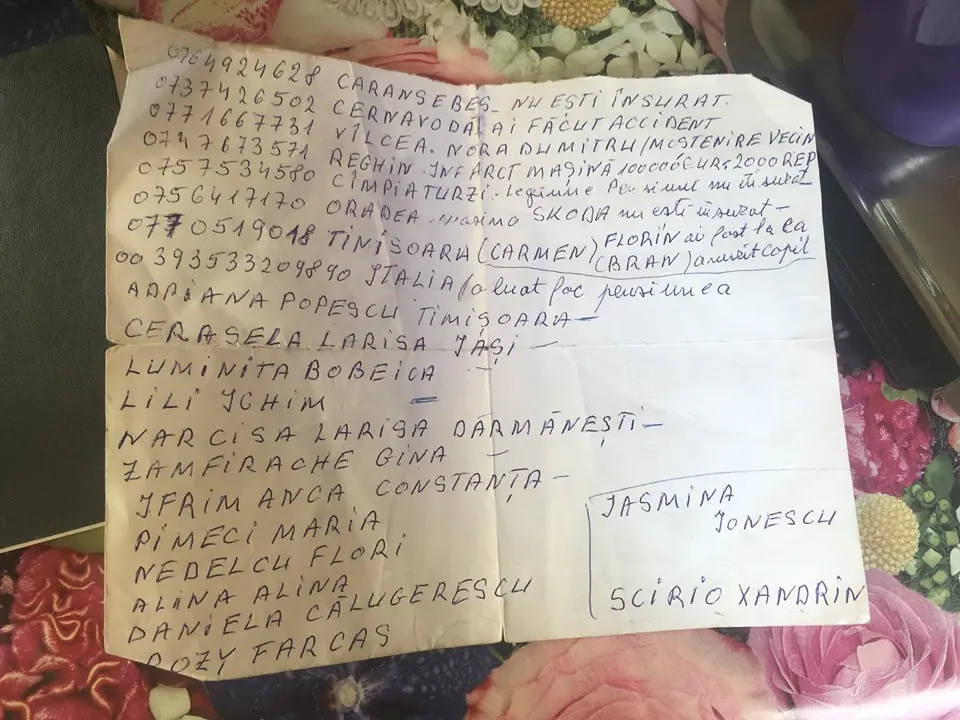 0764924628 CARANSEBEȘ - NU EȘTI ÎNSURAT.
0737426502 CERNAVODA AI FĂCUT ACCIDENT
0771667731 VÎLCEA. NORA DUMITRU/MOSTENIRE VECIN
0747673571 REGHIN. INFARCT MAȘINĂ 2000 REP
0757534580 CÎMPIA TURZI. Legiune Pensiune nu însurat
0756417170 ORADEA. SKODA nu esti însurat -
0770519018 TIMIȘOARA (CARMEN) FLORÎN ai fost la ea
(BRAN) a murit copil
00393533209890 ITALIA (a luat foc pensiunea
ADRIANA POPESCU TIMIȘOARA -
CERASELA LARISA IAȘI -
LUMINITA BOBEICA -
LILI ICHIM
NARCISA LARISA DĂRMĂNEȘTI -
ZAMFIRACHE GINA -
IFRIM ANCA CONSTANȚA -
PIMECI MARIA
NEDELCU FLORI
ALINA ALINA
DANIELA CĂLUGERESCU
ROZY FARCAS
IASMINA
IONESCU
SCIRIO XANDRIN